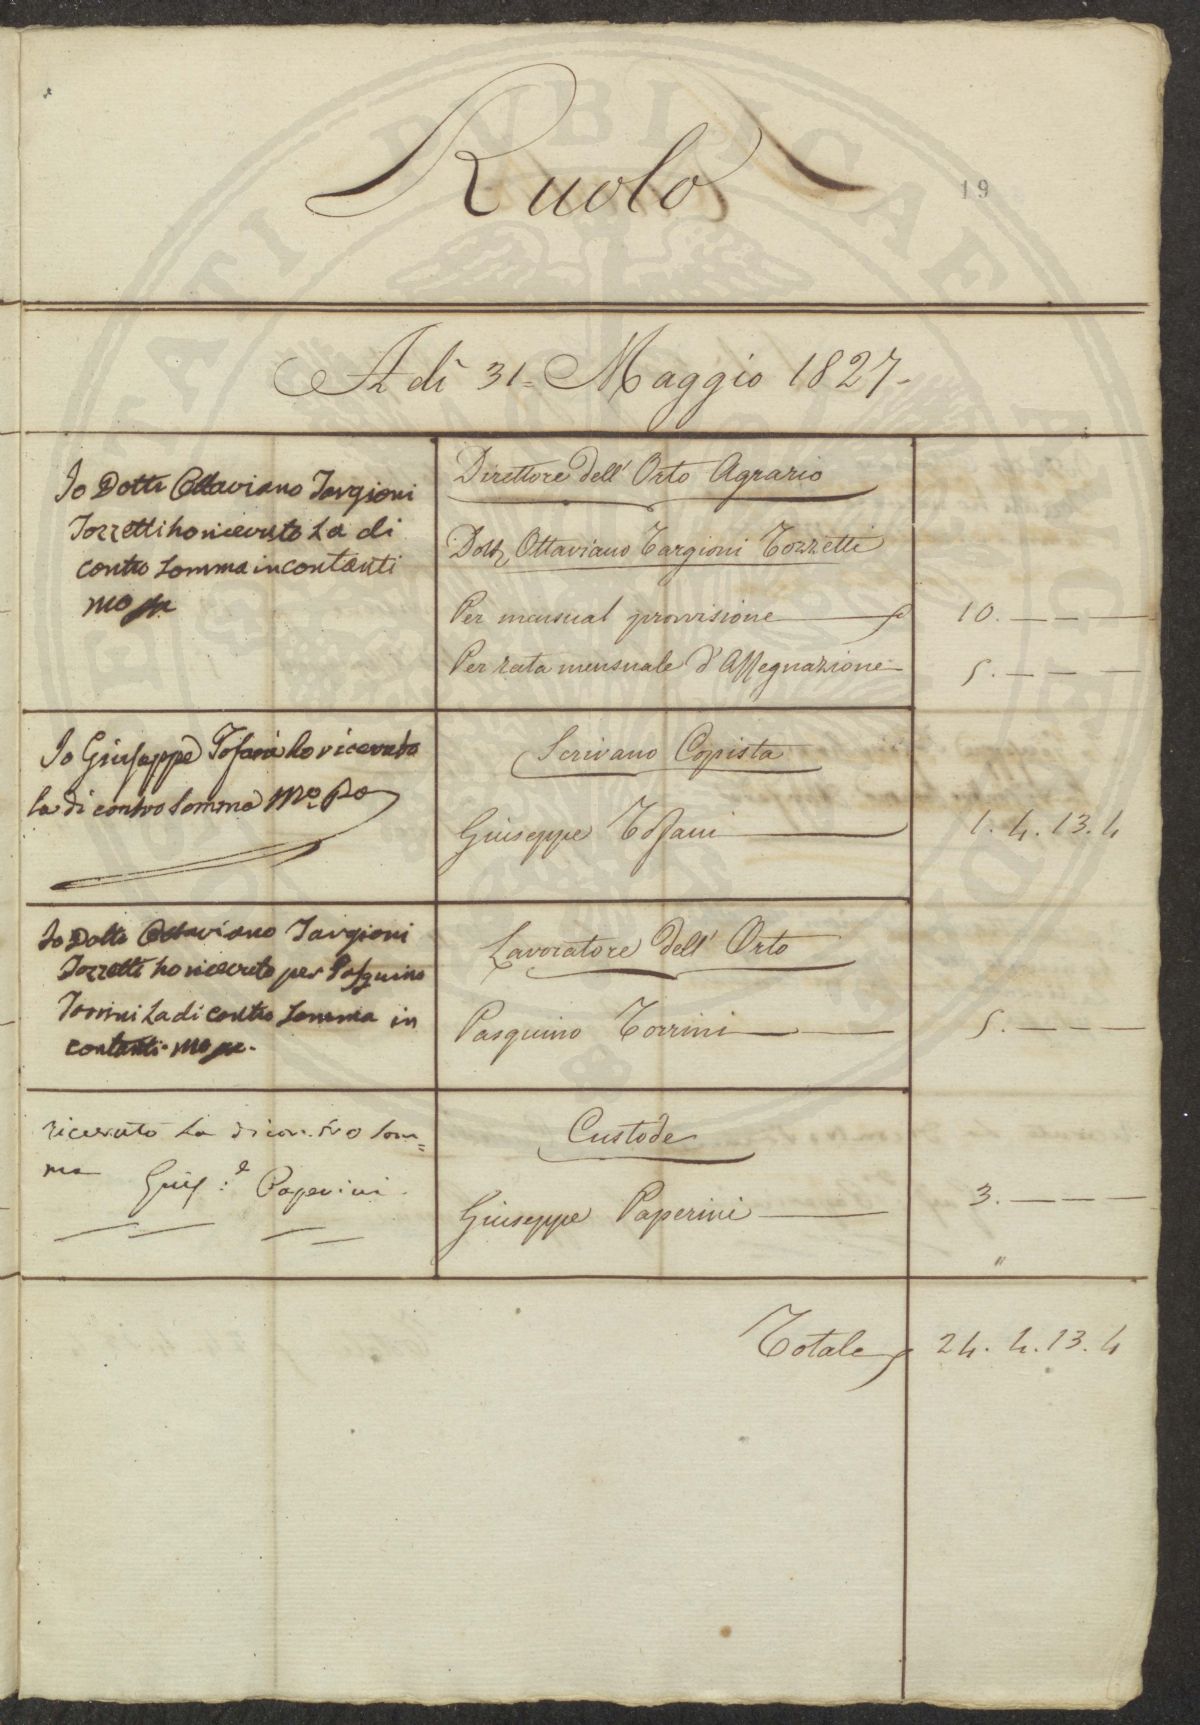 Ruolo
19
A dì 31 = Maggio 1827 -
Io Dottr Ottaviano Targioni
Tozzetti ho ricevuto La di
contro Somma in contanti
Mo pa
Direttore dell' Orto Agrario
Dottr Ottaviano Targioni Tozzetti
Per mensual provvisione 10. — — —
Per rata mensuale d'Assegnazione 5. — — —
Io Giuseppe Tofani ho ricevuto
la di contro Somma Mo. Po
Scrivano Copista
Giuseppe Tofani 1. 4. 13. 4
Io Dotto Ottaviano Targioni
Tozzetti ho ricevuto per Pasquino
Torrini La di contro Somma in
contanti. Mo pa.
Lavoratore dell' Orto
Pasquino Torrini 5. — — —
ricevuto La di contro Som=
ma
Giusee Paperini
Custode
Giuseppe Paperini 3. — — —
"
Totale 24. 4. 13. 4